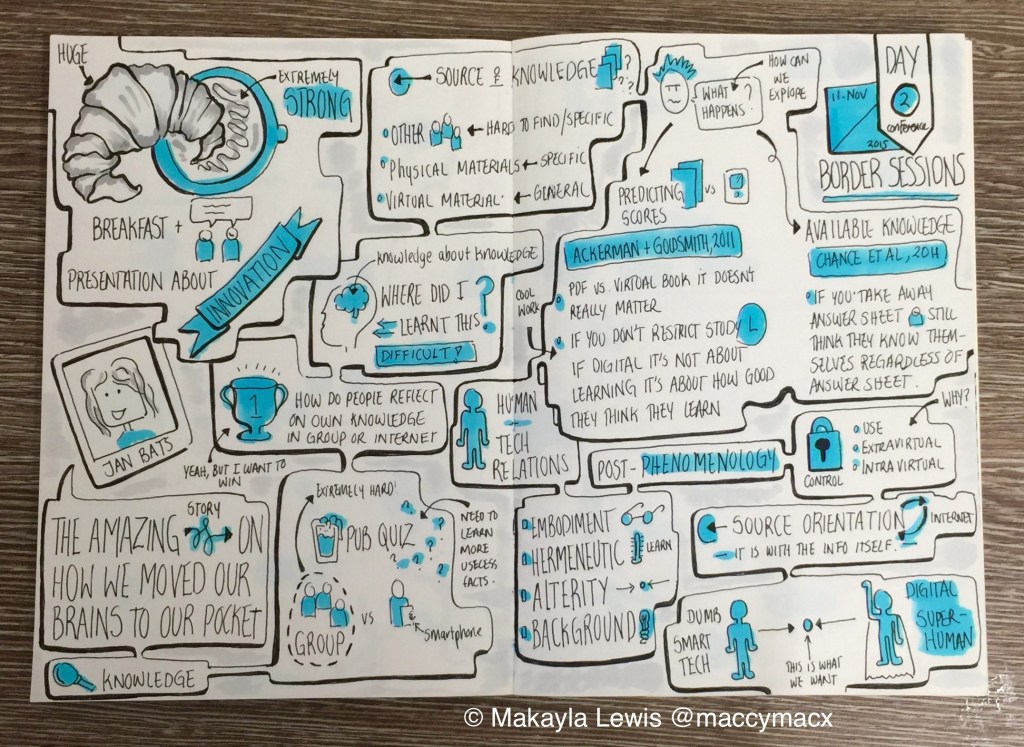 HUGE
EXTREMELY
STRONG
BREAKFAST +
PRESENTATION ABOUT
INNOVATION
JAN BATS
THE AMAZING
STORY
ON
HOW WE MOVED OUR
BRAINS TO OUR POCKET
KNOWLEDGE
SOURCE OF KNOWLEDGE
? ? ?
OTHER
HARD TO FIND/SPECIFIC
PHYSICAL MATERIALS
SPECIFIC
VIRTUAL MATERIAL
GENERAL
KNOWLEDGE ABOUT KNOWLEDGE
WHERE DID I
LEARNT THIS?
DIFFICULT!
1
HOW DO PEOPLE REFLECT
ON OWN KNOWLEDGE
IN GROUP OR INTERNET
YEAH, BUT I WANT TO
WIN
EXTREMELY HARD!
PUB QUIZ
? ? ? ? ? ?
NEED TO
LEARN
MORE
USECESS
FACTS.
GROUP
VS
Smartphone
WHAT ?
HAPPENS.
HOW CAN
WE
EXPLORE
DAY
2
conference
11. NOV
2015
BORDER SESSIONS
PREDICTING
SCORES
VS
ACKERMAN + GOLDSMITH, 2011
PDF VS. VIRTUAL BOOK IT DOESN'T
REALLY MATTER
IF YOU DON'T RESTRICT STUDY
IF DIGITAL IT'S NOT ABOUT
LEARNING IT'S ABOUT HOW GOOD
THEY THINK THEY LEARN
COOL
WORK
AVAILABLE KNOWLEDGE
CHANCE ET AL, 2014
IF YOU TAKE AWAY
ANSWER SHEET STILL
THINK THEY KNOW THEM-
SELVES REGARDLESS OF
ANSWER SHEET.
HUMAN
-
TECH
RELATIONS
POST-PHENOMENOLOGY
CONTROL
WHY?
USE
EXTRAVIRTUAL
INTRAVIRTUAL
EMBODIMENT
HERMENEUTIC
LEARN
ALTERITY
BACKGROUND
SOURCE ORIENTATION
INTERNET
IT IS WITH THE INFO ITSELF.
DUMB
SMART
TECH
THIS IS WHAT
WE WANT
DIGITAL
SUPER-
HUMAN
© Makayla Lewis @maccymacx